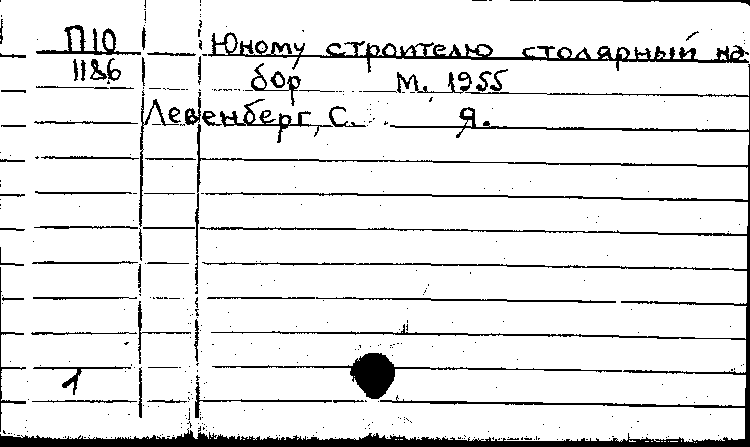 П10 Юному строителю столярный на-
1186 бор М. 1955
Левенберг, С. Я.
1